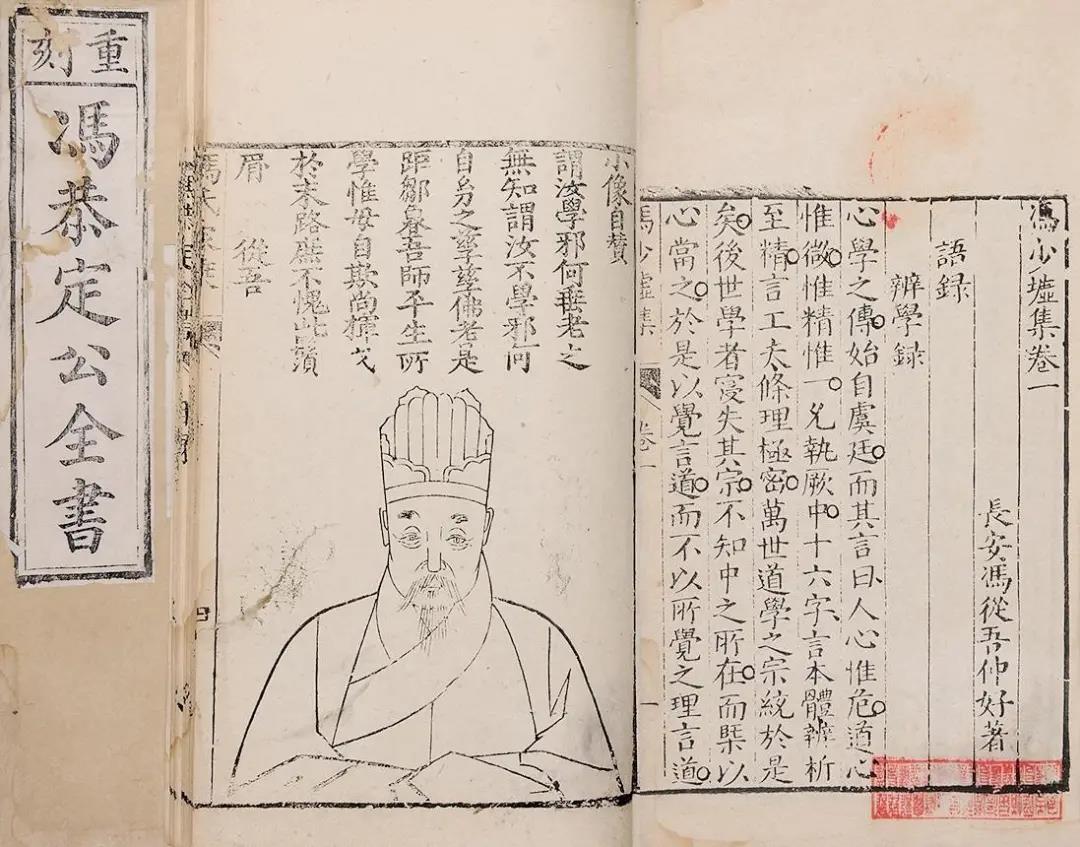 重刻
馮恭定公全書
馮少墟集卷一
長安馮從吾仲好著
語録
辨學録
心學之傳始自虞廷而其言曰人心惟危道心
惟微惟精惟一允執厥中十六字言本體辨析
至精言工夫條理極密萬世道學之宗統於是
矣後世學者寖失其宗不知中之所在而槩以
心當之於是以覺言道而不以所覺之理言道
馮少墟集 卷一 一
小像自贊
謂汝學邪何垂老之
無知謂汝不學邪何
自㓜之孳孳佛老是
距鄒魯吾師平生所
學惟毋自欺尚揮戈
於末路庶不愧此鬚
眉 從吾